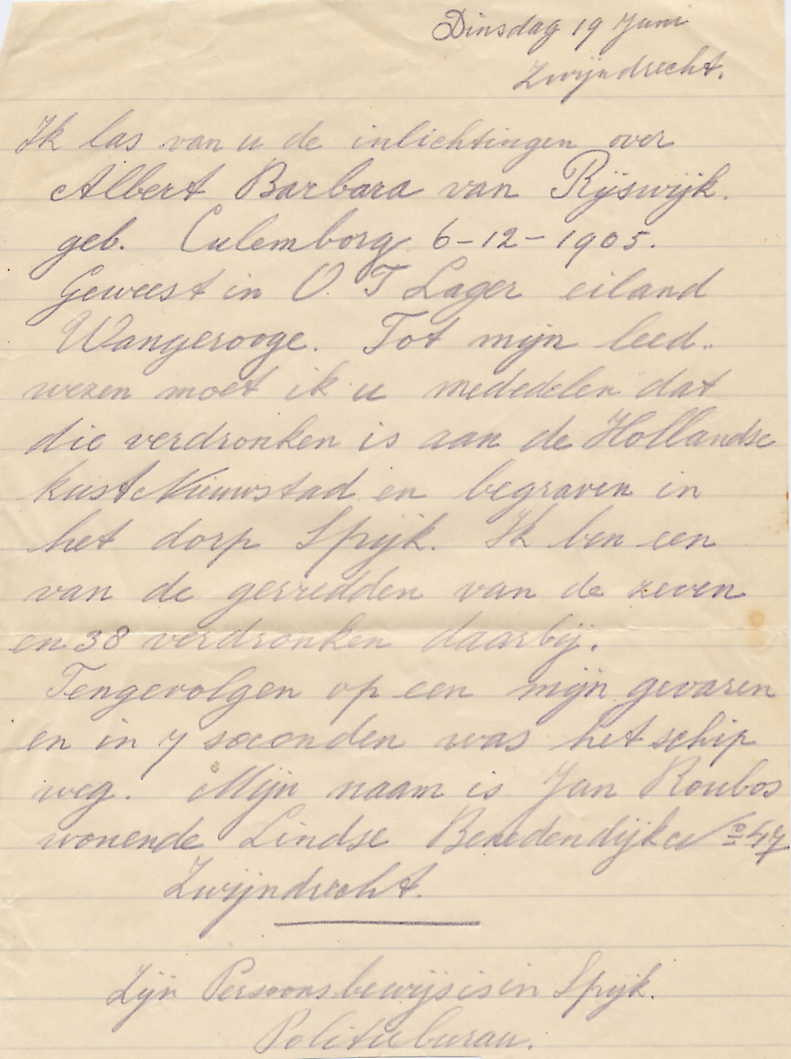 Dinsdag 19 Juni
Zwijndrecht.
Ik las van u de inlichtingen over
Albert Barbara van Rijswijk.
geb. Culemborg 6-12-1905.
Geweest in O. T Lager eiland
Wangerooge. Tot mijn leed-
wezen moet ik u mededelen dat
die verdronken is aan de Hollandse
kust Nieuwstad en begraven in
het dorp Spijk. Ik ben een
van de gerredden van de zeven
en 38 verdronken daarbij.
Tengevolgen op een mijn gevaren
en in 7 seconden was het schip
weg. Mijn naam is Jan Roubos
wonende Lindse Benedendijk No 47
Zwijndrecht.
Zijn Persoonsbewijs is in Spijk.
Politie bureau.